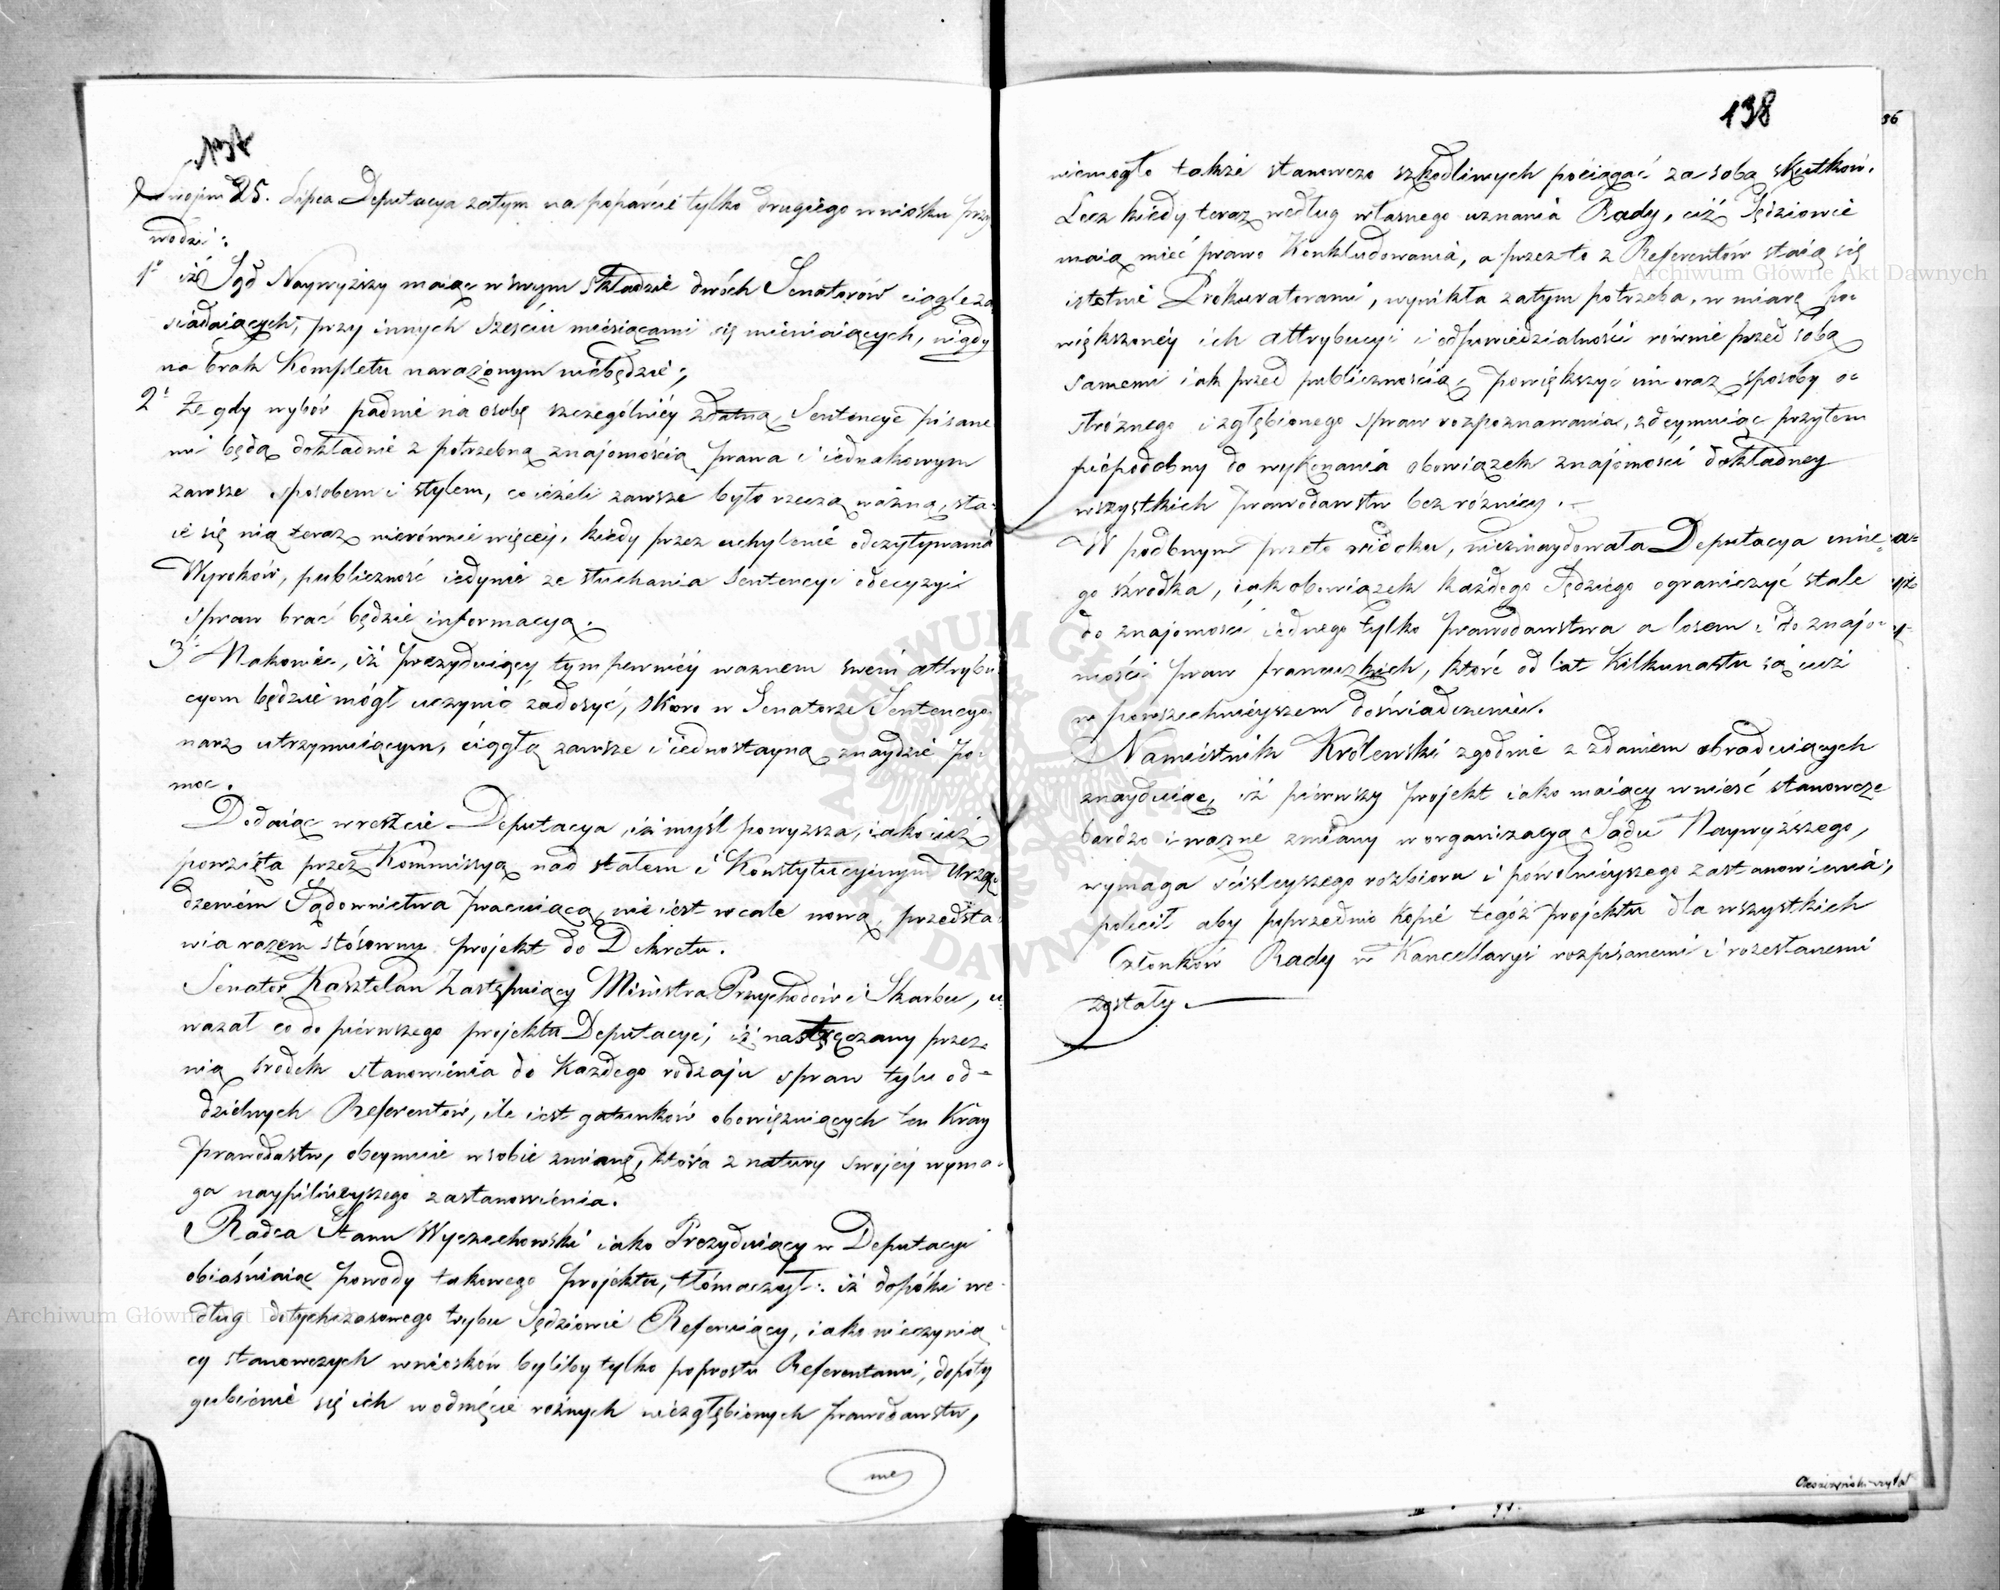 137
Swojim 25. Lipca Deputacya zatym na poparcie tylko drugiego wniosku przy
wodzi:
1° iż Sąd Naywyższy maiąc w swym składzie dwóch Senatorów ciągle za
siadaiących, przy innych sześciu miesiącami się mieniaiących, nigdy
na brak Kompletu narażonym niebędzie;
2° Że gdy wybór padnie na osobę szczególniéy zdatną, Sentencye pisane
mi będą dokładnie z potrzebną znajomością prawa i iednakowym
zawsze sposobem i stylem, co ieżeli zawsze było rzeczą ważną, sta-
ie się nią teraz nierównie więcéj, kiedy przez uchylenie odczytywania
Wyroków, publiczność iedynie ze słuchania Sentencyi o decyzyi
spraw brać będzie informacyą.
3° Nakoniec, iż Prezyduiący tym pewniéy ważnem swem attrybu
cyom będzie mógł uczynić zadosyć, skoro w Senatorze Sentencyo-
narz utrzymuiącym, ciągłą zawsze i iednostayną znaydzie po-
moc.
Dodaiąc wreszcie Deputacya, iż myśl powyższa, iako iuż
powzięta przez Kommissyą nad stałem i Konstytucyjnym Urzą-
dzeniem Sądownictwa pracuiącą, nie iest wcale nową, przedsta-
wia razem stósowny projekt do Dekretu.
Senator Kasztelan Zastępuiący Ministra Przychodów i Skarbu, u-
ważał co do pierwszego projektu Deputacyi, iż nastręczany przez
nią środek stanowienia do każdego rodzaju spraw tylu od-
dzielnych Referentów, ile iest gatunków obowiązuiących ten Kray
Prawodastw, obeymuie w sobie zmianę, która z natury swojéy wyma-
ga naypilnieyszego zastanowienia.
Radca Stanu Wyczechowski iako Prezyduiący w Deputacyi
obiaśniaiąc powody takowego projektu, tłómaczył: iż dopóki we-
dług dotychczasowego trybu Sędziowie Referuiący, iako nieczynią
cy stanowczych wniosków byliby tylko poprostu Referentami, dopóty
gubienie się ich w odmęcie różnych niezgłębionych prawodawstw,
nie
138
niemogło także stanowczo szkodliwych pociągać za sobą skutków.
Lecz kiedy teraz według własnego uznania Rady, ciż Sędziowie
maią mieć prawo Konkludowania, a przez to z Referentów staią się
istotnie Prokuratorami, wynikła zatym potrzeba, w miarę po-
większonéy ich attrybucyi i odpowiedzialności równie przed sobą
samemi iak przed publicznością, powiększyć im oraz sposoby o-
stróżnego i zgłębionego spraw rozpoznawania, zdeymuiąc przytem
niepodobny do wykonania obowiązek znajomości dokładney
wszystkich Prawodawstw bez różnicy.
W podobnym przeto widoku, nieznaydowała Deputacya inne-
go środka, iak obowiązek każdego Sędziego ograniczyć stale
do znajomości iednego tylko prawodawstwa a losem i do znajo-
mości praw francuzkich, które od lat Kilkunastu są iuż
w powszechnieyszem doświadczeniu.
Namiestnik Królewski zgodnie z zdaniem obraduiących
znayduiąc, iż pierwszy projekt iako maiący wnieść stanowcze
bardzo i ważne zmiany w organizacyą Sądu Naywyższego,
wymaga ściśleyszego rozbioru i powolnieyszego zastanowienia,
polecił aby poprzednio kopie tegóż projektu dla wszystkich
Członków Rady w Kancellaryi rozpisanemi i rozesłanemi
zostały.
Archiwum Główne Akt Dawnych
Archiwum Główne Akt Dawnych
ARCHIWUM GŁÓWNE AKT DAWNYCH